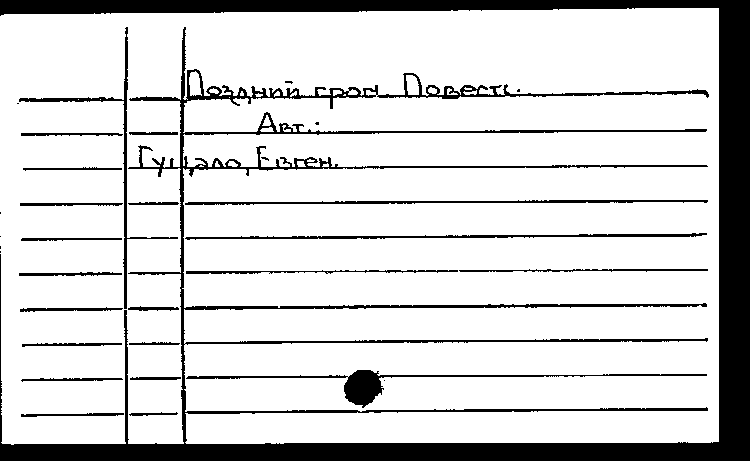 Поздний гром. Повесть.
Авт.:
Гуцало, Евген.